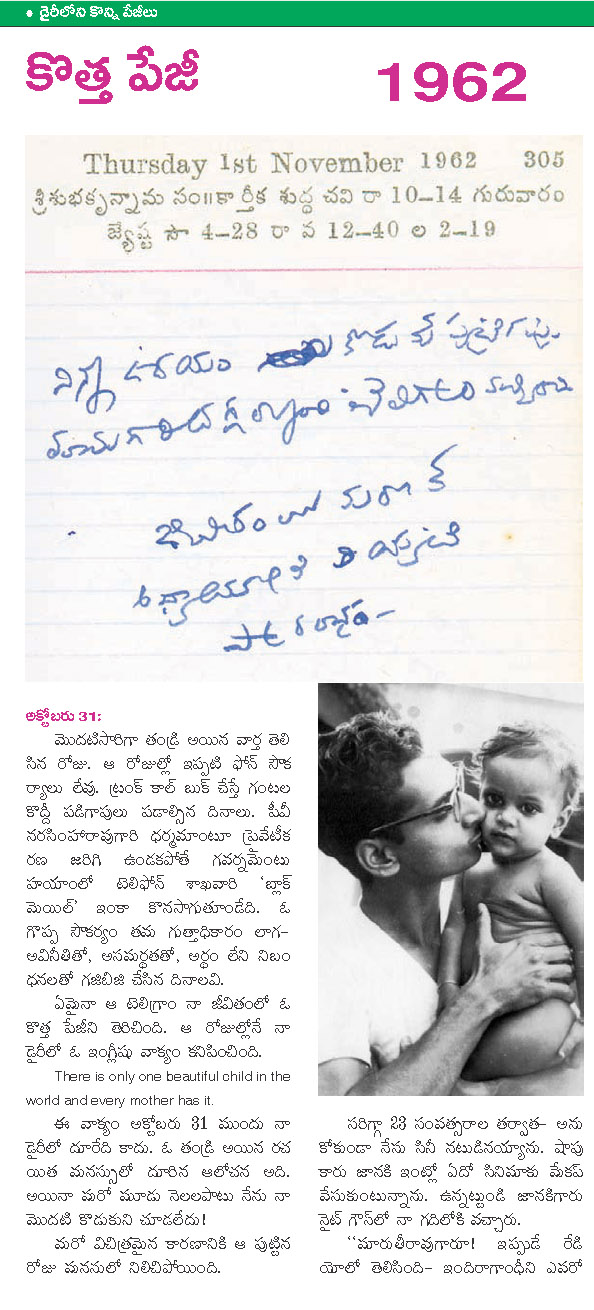 ● డైరీలోని కొన్ని పేజీలు
కొత్త పేజీ 1962
Thursday 1st November 1962 305
శ్రీశుభకృన్నామ సం॥కార్తీక శుద్ధ చవి రా 10–14 గురువారం
జ్యేష్ట సా 4–28 రా వ 12–40 ల 2–19
నిన్న ఉదయం కొడుకు పుట్టినట్టు
మామగారి దగ్గర్నుంచి టెలిగ్రాం వచ్చింది
జీవితంలో మరొక
అధ్యాయానికి యిప్పటి
ప్రారంభం–
అక్టోబరు 31:
మొదటిసారిగా తండ్రి అయిన వార్త తెలి
సిన రోజు. ఆ రోజుల్లో ఇప్పటి ఫోన్ సౌక
ర్యాలు లేవు. ట్రంక్ కాల్ బుక్ చేస్తే గంటల
కొద్దీ పడిగాపులు పడాల్సిన దినాలు. పీవీ
నరసింహారావుగారి ధర్మమాంటూ ప్రైవేటీక
రణ జరిగి ఉండకపోతే గవర్నమెంటు
హయాంలో టెలిఫోన్ శాఖవారి ‘బ్లాక్
మెయిల్’ ఇంకా కొనసాగుతూండేది. ఓ
గొప్ప సౌకర్యం తమ గుత్తాధికారం లాగ–
అవినీతితో, అసమర్థతతో, అర్థం లేని నిబం
ధనలతో గజిబిజి చేసిన దినాలవి.
ఏమైనా ఆ టెలిగ్రాం నా జీవితంలో ఓ
కొత్త పేజీని తెరిచింది. ఆ రోజుల్లోనే నా
డైరీలో ఓ ఇంగ్లీషు వాక్యం కనిపించింది.
There is only one beautiful child in the
world and every mother has it.
ఈ వాక్యం అక్టోబరు 31 ముందు నా
డైరీలో దూరేది కాదు. ఓ తండ్రి అయిన రచ
యిత మనస్సులో దూరిన ఆలోచన అది.
అయినా మరో మూడు నెలలపాటు నేను నా
మొదటి కొడుకుని చూడలేదు!
మరో విచిత్రమైన కారణానికి ఆ పుట్టిన
రోజు మనసులో నిలిచిపోయింది.
సరిగ్గా 23 సంవత్సరాల తర్వాత– అను
కోకుండా నేను సినీ నటుడినయ్యాను. షావు
కారు జానకి ఇంట్లో ఏదో సినిమాకు మేకప్
వేసుకుంటున్నాను. ఉన్నట్టుండి జానకిగారు
నైట్ గౌన్‌లో నా గదిలోకి వచ్చారు.
‘‘మారుతీరావుగారూ! ఇప్పుడే రేడి
యోలో తెలిసింది– ఇందిరాగాంధీని ఎవరో